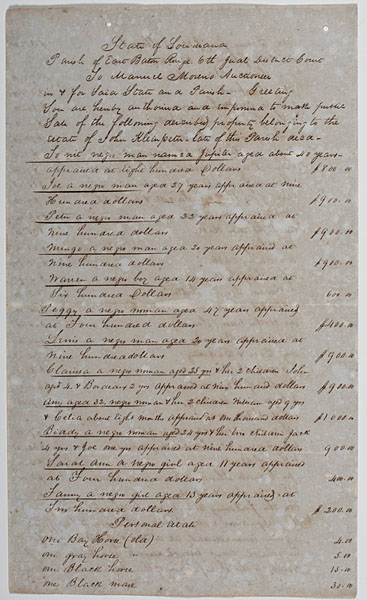 State of Louisiana
Parish of East Baton Rouge 6th Judl District Court
To Manuel Auctioneer
in & for Said State and Parish - Greeting
You are hereby authorized and empowered to make public
Sale of the following described property belonging to the
estate of John Kleinpeter late of this Parish decd -
To wit negro man named Jupiter aged about 40 years
appraised at Eight hundred Dollars $800.00
Joe a negro man aged 27 years appraised at Nine
Hundred dollars $900.00
a negro man aged 33 years appraised at
Nine hundred dollars $900.00
Mingo a negro man aged 20 years appraised at
Nine hundred dollars $900.00
Warren a negro boy aged 14 years appraised at
Six hundred Dollars 600.00
Peggy a negro woman aged 47 years appraised
at Four hundred dollars $400.00
a negro woman aged 20 years appraised at
Nine hundred dollars $900
Clarissa a negro woman aged 25 yrs & her 2 children John
aged 4 & 2 yrs appraised at Nine hundred dollars $900.00
Amy aged 32 negro woman & her 2 children aged 9 yrs
& Celia about Eight months appraised at One thousand dollars $1000.00
Biddy a negro woman aged 24 yrs & her two children Jack
4 yrs & Joe one yrs appraised at Nine hundred dollars 900.00
Sarah Ann a negro girl aged 11 years appraised
at Four hundred dollars 400.00
Fanny a negro girl aged 13 years appraised at
hundred dollars $200.00
Personal Estate
One Bay Horse (old) 4.00
one gray horse " 5.00
one Black horse 15.00
one Black mare 30.00